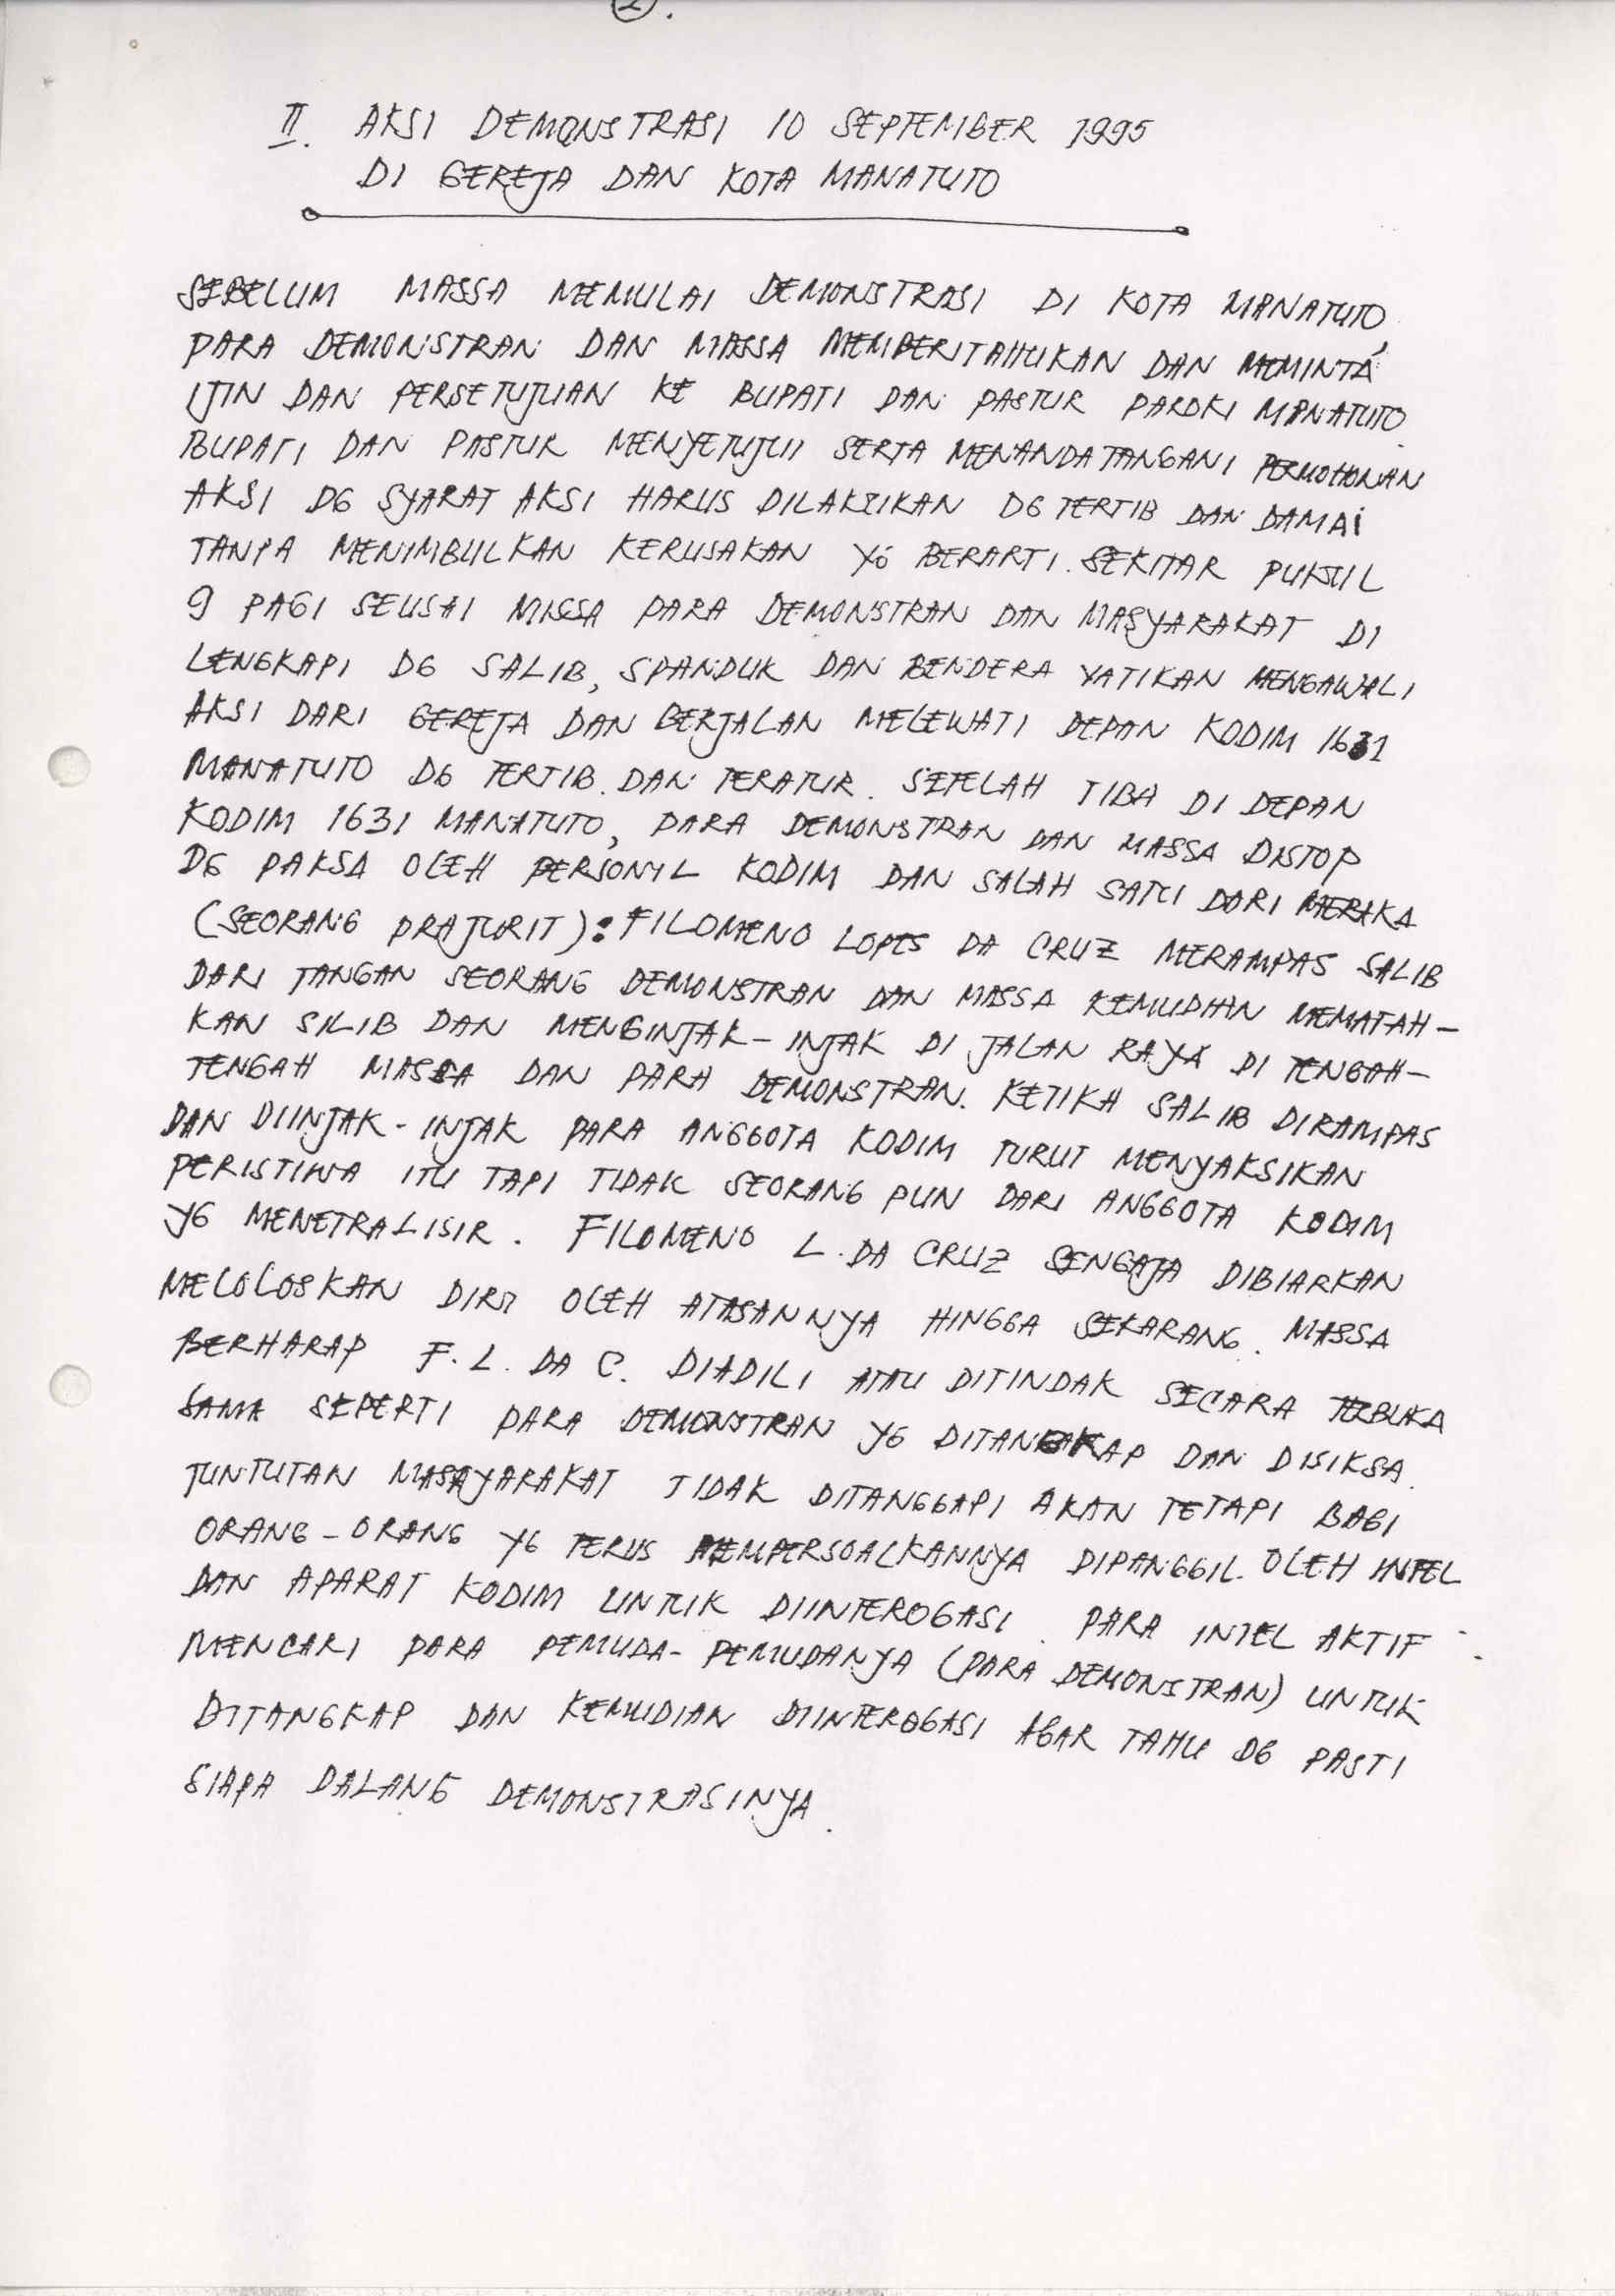 2.
II. AKSI DEMONSTRASI 10 SEPTEMBER 1995
DI GEREJA DAN KOTA MANATUTO
SEBELUM MASSA MEMULAI DEMONSTRASI DI KOTA MANATUTO,
PARA DEMONSTRAN DAN MASSA MEMBERITAHUKAN DAN MEMINTA
IJIN DAN PERSETUJUAN KE BUPATI DAN PASTUR PAROKI MANATUTO.
BUPATI DAN PASTUR MENYETUJUI SERTA MENANDATANGANI PERMOHONAN
AKSI DG SYARAT AKSI HARUS DILAKUKAN DG TERTIB DAN DAMAI
TANPA MENIMBULKAN KERUSAKAN YG BERARTI. SEKITAR PUKUL
9 PAGI SEUSAI MISSA PARA DEMONSTRAN DAN MASYARAKAT DI
LENGKAPI DG SALIB, SPANDUK DAN BENDERA VATIKAN MENGAWALI
AKSI DARI GEREJA DAN BERJALAN MELEWATI DEPAN KODIM 1631
MANATUTO DG TERTIB DAN TERATUR. SETELAH TIBA DI DEPAN
KODIM 1631 MANATUTO, PARA DEMONSTRAN DAN MASSA DISTOP
DG PAKSA OLEH PERSONYL KODIM DAN SALAH SATU DARI MEREKA
(SEORANG PRAJURIT): FILOMENO LOPES DA CRUZ MERAMPAS SALIB
DARI TANGAN SEORANG DEMONSTRAN DAN MASSA KEMUDIAN MEMATAH-
KAN SILIB DAN MENGINJAK-INJAK DI JALAN RAYA DI TENGAH-
TENGAH MASSA DAN PARA DEMONSTRAN. KETIKA SALIB DIRAMPAS
DAN DIINJAK-INJAK PARA ANGGOTA KODIM TURUT MENYAKSIKAN
PERISTIWA ITU TAPI TIDAK SEORANG PUN DARI ANGGOTA KODIM
YG MENETRALISIR. FILOMENO L. DA CRUZ SENGAJA DIBIARKAN
MELOLOSKAN DIRI OLEH ATASANNYA HINGGA SEKARANG. MASSA
BERHARAP F. L. DA C. DIADILI ATAU DITINDAK SECARA TERBUKA
SAMA SEPERTI PARA DEMONSTRAN YG DITANGKAP DAN DISIKSA.
TUNTUTAN MASAYARAKAT TIDAK DITANGGAPI AKAN TETAPI BAGI
ORANG-ORANG YG TERUS MEMPERSOALKANNYA DIPANGGIL OLEH INTEL
DAN APARAT KODIM UNTUK DIINTEROGASI. PARA INTEL AKTIF
MENCARI PARA PEMUDA-PEMUDANYA (PARA DEMONSTRAN) UNTUK
DITANGKAP DAN KEMUDIAN DIINTEROGASI AGAR TAHU DG PASTI
SIAPA DALANG DEMONSTRASINYA.